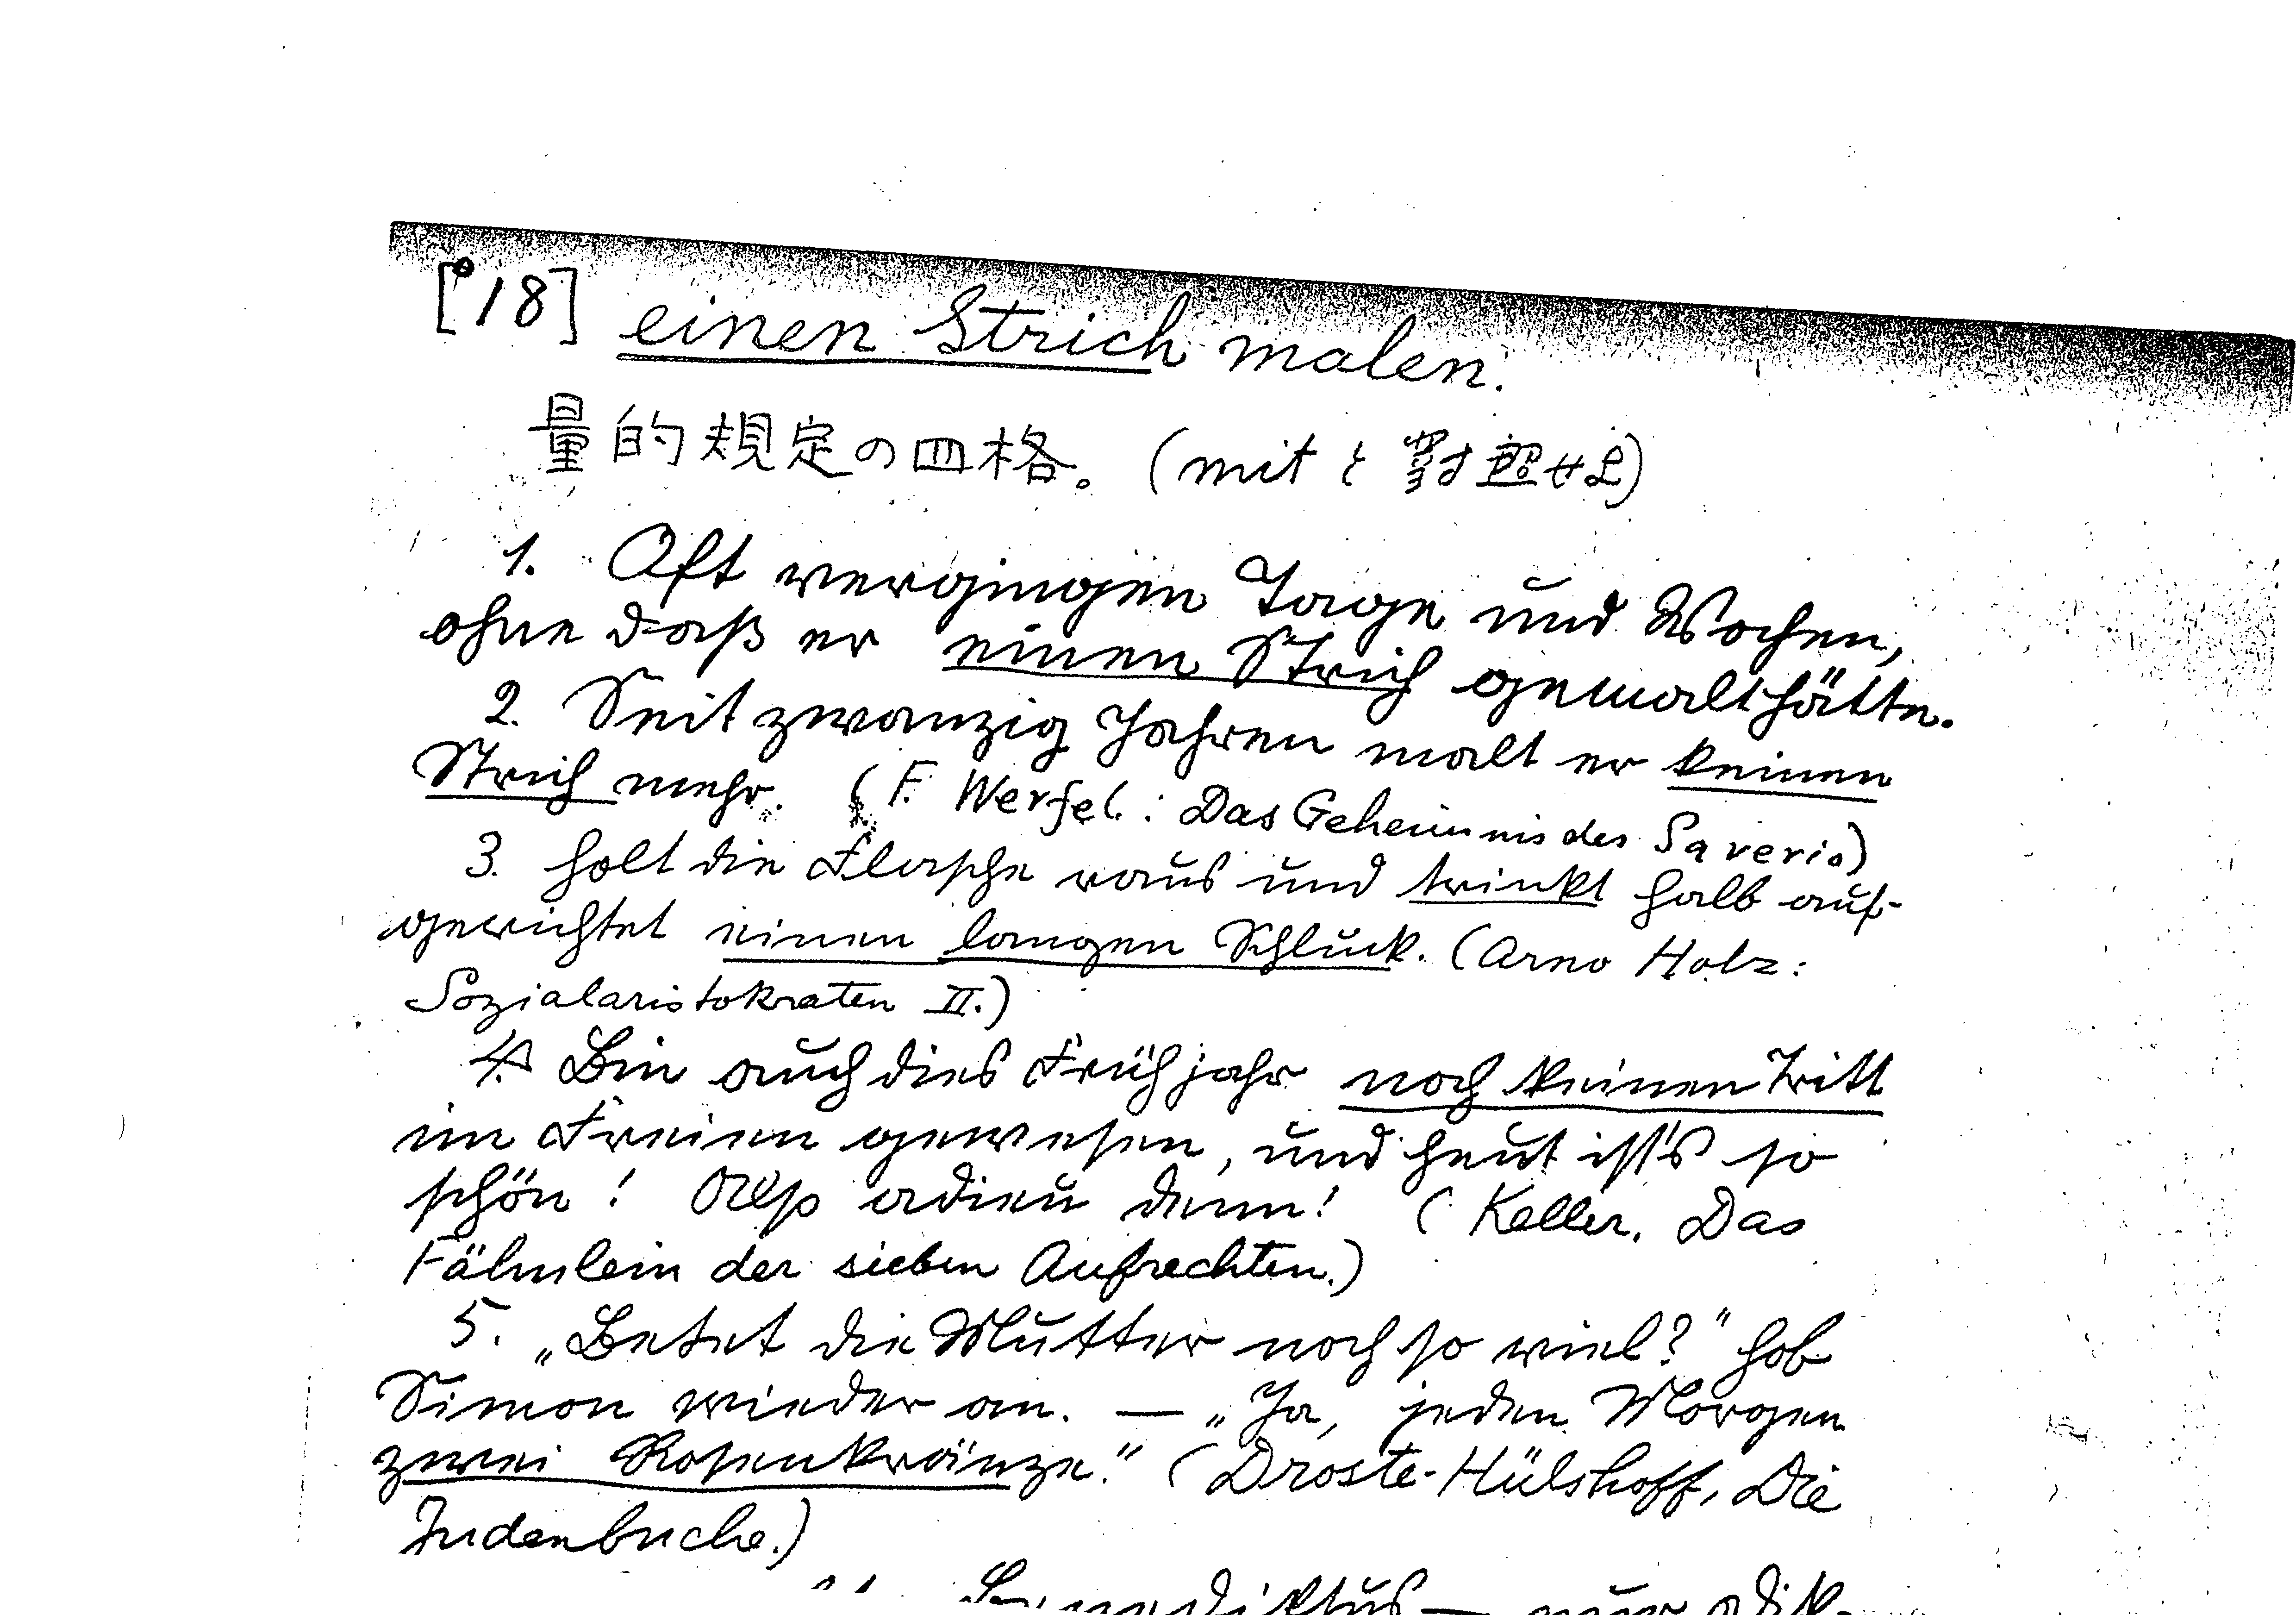 [°18] einen Strich malen.
量的規定の四格。(mit と對照せよ)
1. Oft vergingen Tage und Wochen,
ohne daß er einen Strich gemalt hätte.
2. Seit zwanzig Jahren malt er keinen
Strich mehr. (F. Werfel.: Das Geheimnis des Saverio)
3. holt die Flasche raus und trinkt halb auf-
gerichtet einen langen Schluck. (Arno Holz:
Sozialaristokraten II.)
4. Bin auch dies Frühjahr noch keinen Tritt
im Freien gewesen, und heut ist's so
schön! Also adieu denn! (Keller. Das
Fähnlein der sieben Aufrechten.)
5. „Betet die Mutter noch so viel?" hob
Simon wieder an. — „Ja, jeden Morgen
zwei Rosenkränze." (Droste-Hülshoff, Die
Judenbuche.)